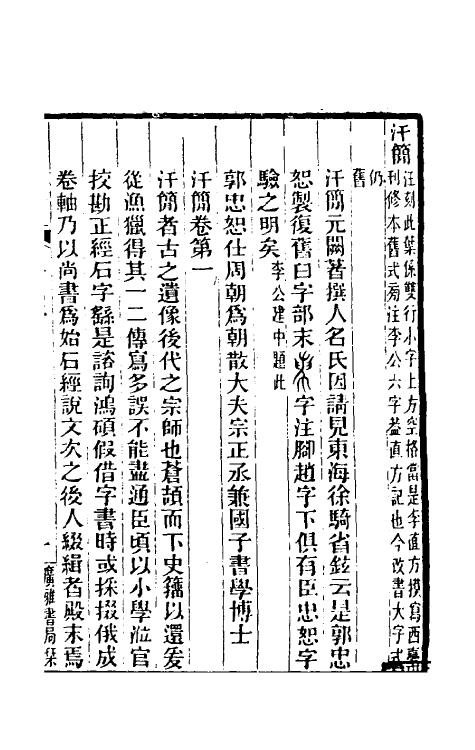 汗簡汪刻此葉係雙行小字上方空格當是李直方摸寫西臺
刊修本舊式旁注李公六字葢直方記也今改書大字式
仍
舊
汗簡元闕著撰人名氏因請見東海徐騎省鉉云是郭忠
恕製復舊臼字部末字注腳趙字下俱有臣忠恕字
驗之明矣李公建中題此
郭忠恕仕周朝爲朝散大夫宗正丞兼國子書學博士
汗簡卷第一
汗簡者古之遺像後代之宗師也蒼頡而下史籒以還爰
從漁獵得其一二傳寫多誤不能盡通臣頃以小學涖官
挍勘正經石字繇是諮詢鴻碩假借字書時或採掇俄成
卷軸乃以尚書爲始石經說文次之後人綴緝者殿末焉
一
廣雅書局栞